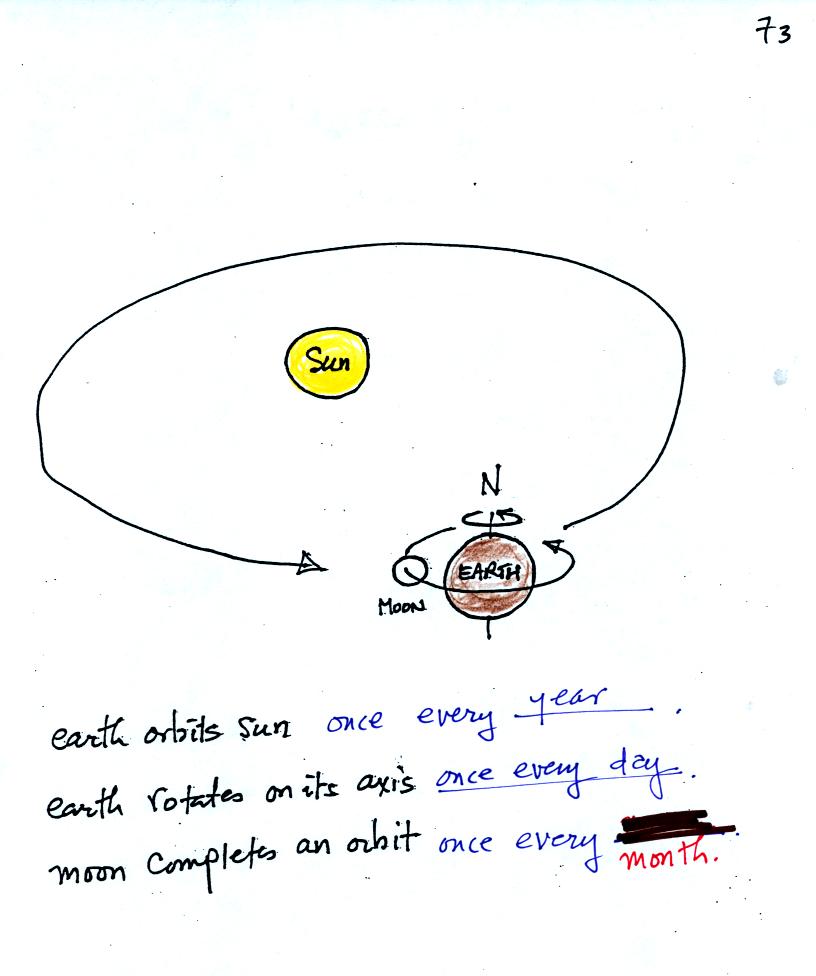 73
Sun
N
EARTH
MOON
earth orbits sun once every year.
earth rotates on its axis once every day.
moon completes an orbit once every
month.